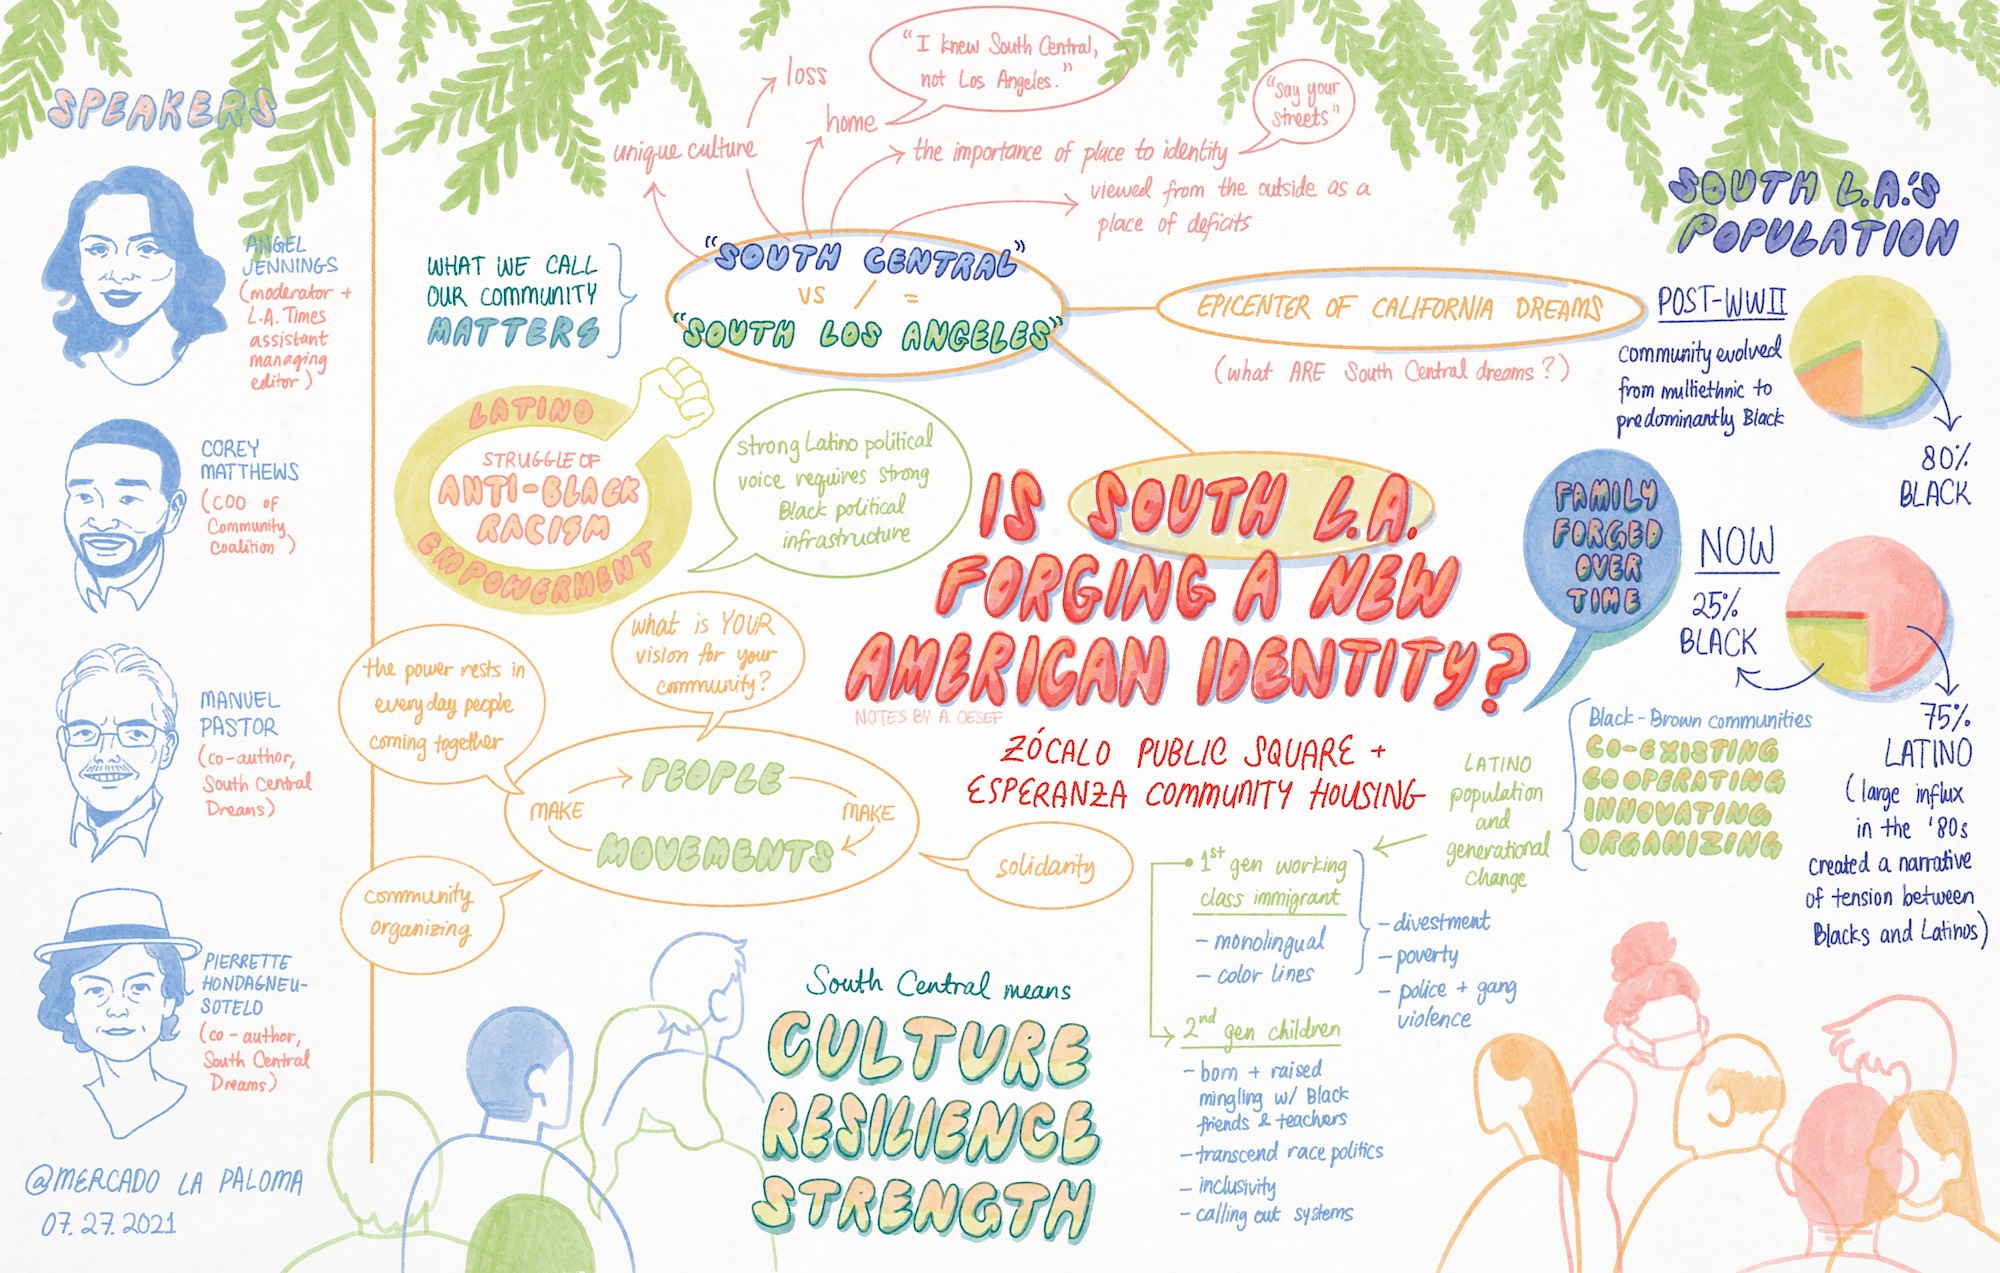 SPEAKERS
ANGEL
JENNINGS
(moderator +
L.A. Times
assistant
managing
editor)
COREY
MATTHEWS
(COO of
Community
Coalition)
MANUEL
PASTOR
(co-author,
South Central
Dreams)
PIERRETTE
HONDAGNEU-
SOTELO
(co-author,
South Central
Dreams)
@MERCADO LA PALOMA
07.27.2021
WHAT WE CALL
OUR COMMUNITY
MATTERS
"SOUTH CENTRAL"
VS / =
"SOUTH LOS ANGELES"
unique culture
loss
home
"I knew South Central,
not Los Angeles."
the importance of place to identity
"say your
streets"
viewed from the outside as a
place of deficits
EPICENTER OF CALIFORNIA DREAMS
(what ARE South Central dreams?)
LATINO
STRUGGLE OF
ANTI-BLACK
RACISM
EMPOWERMENT
Strong Latino political
voice requires strong
Black political
infrastructure
IS SOUTH L.A.
FORGING A NEW
AMERICAN IDENTITY?
NOTES BY A. OESEF
ZÓCALO PUBLIC SQUARE +
ESPERANZA COMMUNITY HOUSING
what is YOUR
vision for your
community?
the power rests in
everyday people
coming together
PEOPLE
MAKE
MAKE
MOVEMENTS
solidarity
community
organizing
South Central means
CULTURE
RESILIENCE
STRENGTH
SOUTH L.A.'S
POPULATION
POST-WWII
community evolved
from multiethnic to
predominantly Black
80%
BLACK
FAMILY
FORGED
OVER
TIME
NOW
25%
BLACK
75%
LATINO
(large influx
in the '80s
created a narrative
of tension between
Blacks and Latinos)
Black-Brown communities
CO-EXISTING
COOPERATING
INNOVATING
ORGANIZING
LATINO
population
and
generational
change
1st gen working
class immigrant
- monolingual
- color lines
- divestment
- poverty
- police + gang
violence
2nd gen children
- born + raised
mingling w/ Black
friends & teachers
- transcend race politics
- inclusivity
- calling out systems